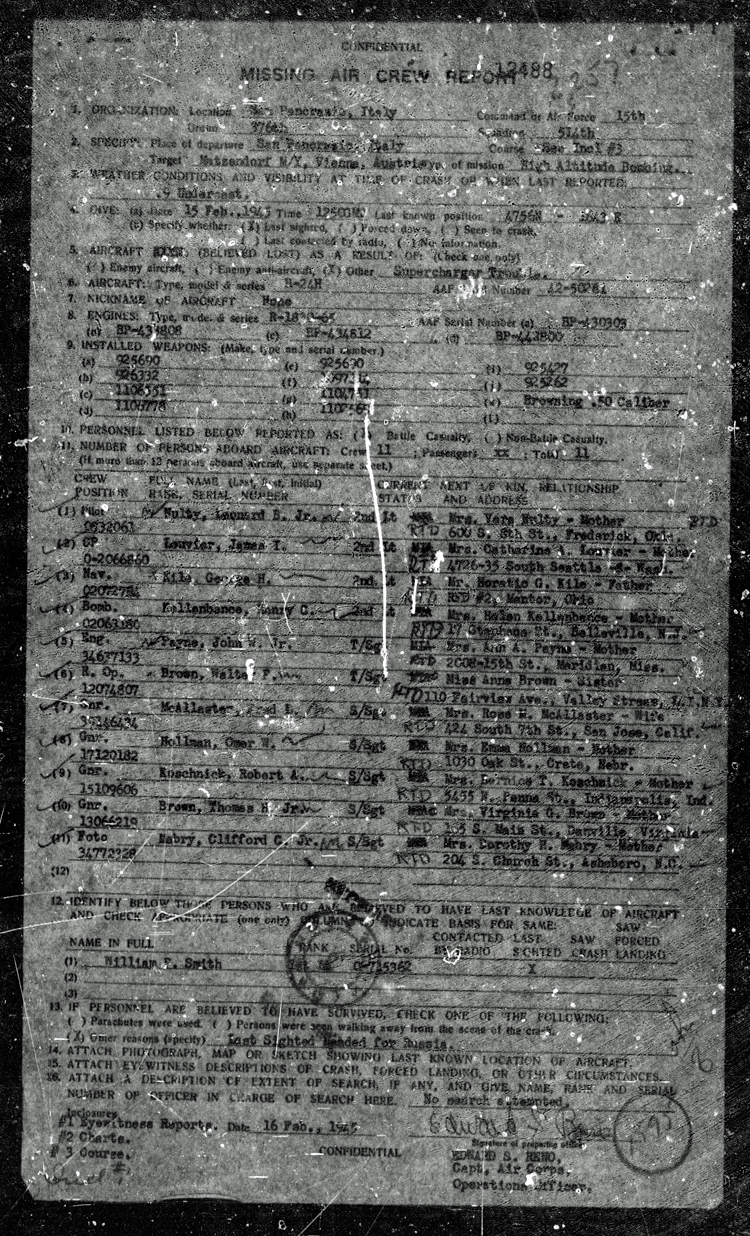 CONFIDENTIAL
MISSING AIR CREW REPORT 12488
1. ORGANIZATION: Location San Pancrazio, Italy Command or Air Force 15th
Group 376th Squadron 514th
2. SPECIFY: Place of departure San Pancrazio, Italy Course See Incl #3
Target Matzendorf M/Y, Vienna, Austria Type of mission High Altitude Bombing.
3. WEATHER CONDITIONS AND VISIBILITY AT TIME OF CRASH OR WHEN LAST REPORTED:
.9 Undercast.
4. GIVE: (a) Date 15 Feb., 1945 Time Last known position 4756N -
(b) Specify whether: (X) Last sighted, ( ) Forced down, ( ) Seen to crash,
( ) Last contacted by radio, ( ) No information.
5. AIRCRAFT (BELIEVED LOST) AS A RESULT OF: (Check one only)
( ) Enemy aircraft, ( ) Enemy anti-aircraft, (X) Other Supercharger Trouble.
6. AIRCRAFT: Type, model & series B-24H AAF Serial Number 42-50284
7. NICKNAME OF AIRCRAFT None
8. ENGINES: Type, model & series R-1830-65 AAF Serial Number (a) BP-430303
(b) BP-434808 (c) BP-434812 (d) BP-442800
9. INSTALLED WEAPONS: (Make, type and serial number.)
(a) 925690 (e) 925690 (i) 925427
(b) 926332 (f) (j) 925262
(c) 1106551 (g) (k) Browning .50 Caliber
(d) 1106778 (h) (l)
10. PERSONNEL LISTED BELOW REPORTED AS: (X) Battle Casualty, ( ) Non-Battle Casualty.
11. NUMBER OF PERSONS ABOARD AIRCRAFT: Crew 11 ; Passengers xx ; Total 11
(If more than 12 persons aboard aircraft, use separate sheet.)
CREW FULL NAME (Last, first, initial) CURRENT NEXT OF KIN, RELATIONSHIP
POSITION RANK, SERIAL NUMBER STATUS AND ADDRESS
(1) Pilot Nulty, Leonard B. Jr. 2nd Lt MIA Mrs. Vera Nulty - Mother RTD
0832061 RTD 600 S. 8th St., Frederick, Okla.
(2) CP Louvier, James T. 2nd Lt MIA Mrs. Catharine A. Louvier - Mother
0-2066860 RTD 4726-35 South Seattle -8- Wash.
(3) Nav. Kile, George H. 2nd Lt MIA Mr. Horatio G. Kile - Father
02072784 RTD RFD #2, Mentor, Ohio
(4) Bomb. Kellenbence, Henry C. 2nd Lt MIA Mrs. Helen Kellenbence - Mother
02063380 RTD 17 Stephens St., Belleville, N.J.
(5) Eng. Payne, John W. Jr. T/Sgt MIA Mrs. Ann A. Payne - Mother
34637133 RTD 2608-15th St., Meridian, Miss.
(6) R. Op. Brown, Walter F. T/Sgt MIA Miss Anna Brown - Sister
12074807 RTD 110 Fairview Ave., Valley Stream, L.I.N.Y.
(7) Gnr. McAllaster, Fred L. S/Sgt MIA Mrs. Rose M. McAllaster - Wife
39146434 RTD 424 South 7th St., San Jose, Calif.
(8) Gnr. Hollman, Omer W. S/Sgt MIA Mrs. Emma Hollman - Mother
17120182 RTD 1030 Oak St., Crete, Nebr.
(9) Gnr. Koschnick, Robert A. S/Sgt MIA Mrs. Bernice T. Koschnick - Mother
15109606 RTD 5455 N. Penna St., Indianapolis, Ind.
(10) Gnr. Brown, Thomas H. Jr. S/Sgt MIA Mrs. Virginia G. Brown - Mother
13066219 RTD S. Main St., Danville, Virginia
(11) Foto Mabry, Clifford C. Jr. S/Sgt MIA Mrs. Dorothy H. Mabry - Mother
34772328 RTD 204 S. Church St., Asheboro, N.C.
(12)
12. IDENTIFY BELOW THOSE PERSONS WHO ARE BELIEVED TO HAVE LAST KNOWLEDGE OF AIRCRAFT
AND CHECK APPROPRIATE (one only) COLUMN TO INDICATE BASIS FOR SAME: SAW
CONTACTED LAST SAW FORCED
NAME IN FULL RANK SERIAL No. BY RADIO SIGHTED CRASH LANDING
(1) William F. Smith 1st Lt 0-715362 X
(2)
(3)
13. IF PERSONNEL ARE BELIEVED TO HAVE SURVIVED, CHECK ONE OF THE FOLLOWING:
( ) Parachutes were used. ( ) Persons were seen walking away from the scene of the crash.
(X) Other reasons (specify) Last Sighted Headed for Russia.
14. ATTACH PHOTOGRAPH, MAP OR SKETCH SHOWING LAST KNOWN LOCATION OF AIRCRAFT.
15. ATTACH EYEWITNESS DESCRIPTIONS OF CRASH, FORCED LANDING, OR OTHER CIRCUMSTANCES.
16. ATTACH A DESCRIPTION OF EXTENT OF SEARCH, IF ANY, AND GIVE NAME, RANK AND SERIAL
NUMBER OF OFFICER IN CHARGE OF SEARCH HERE. No search attempted.
Inclosures
#1 Eyewitness Reports. Date 16 Feb., 1945 Edward S. Reno
#2 Charts. Signature of preparing officer
# 3 Course. CONFIDENTIAL EDWARD S. RENO,
Capt, Air Corps.
Operations Officer.